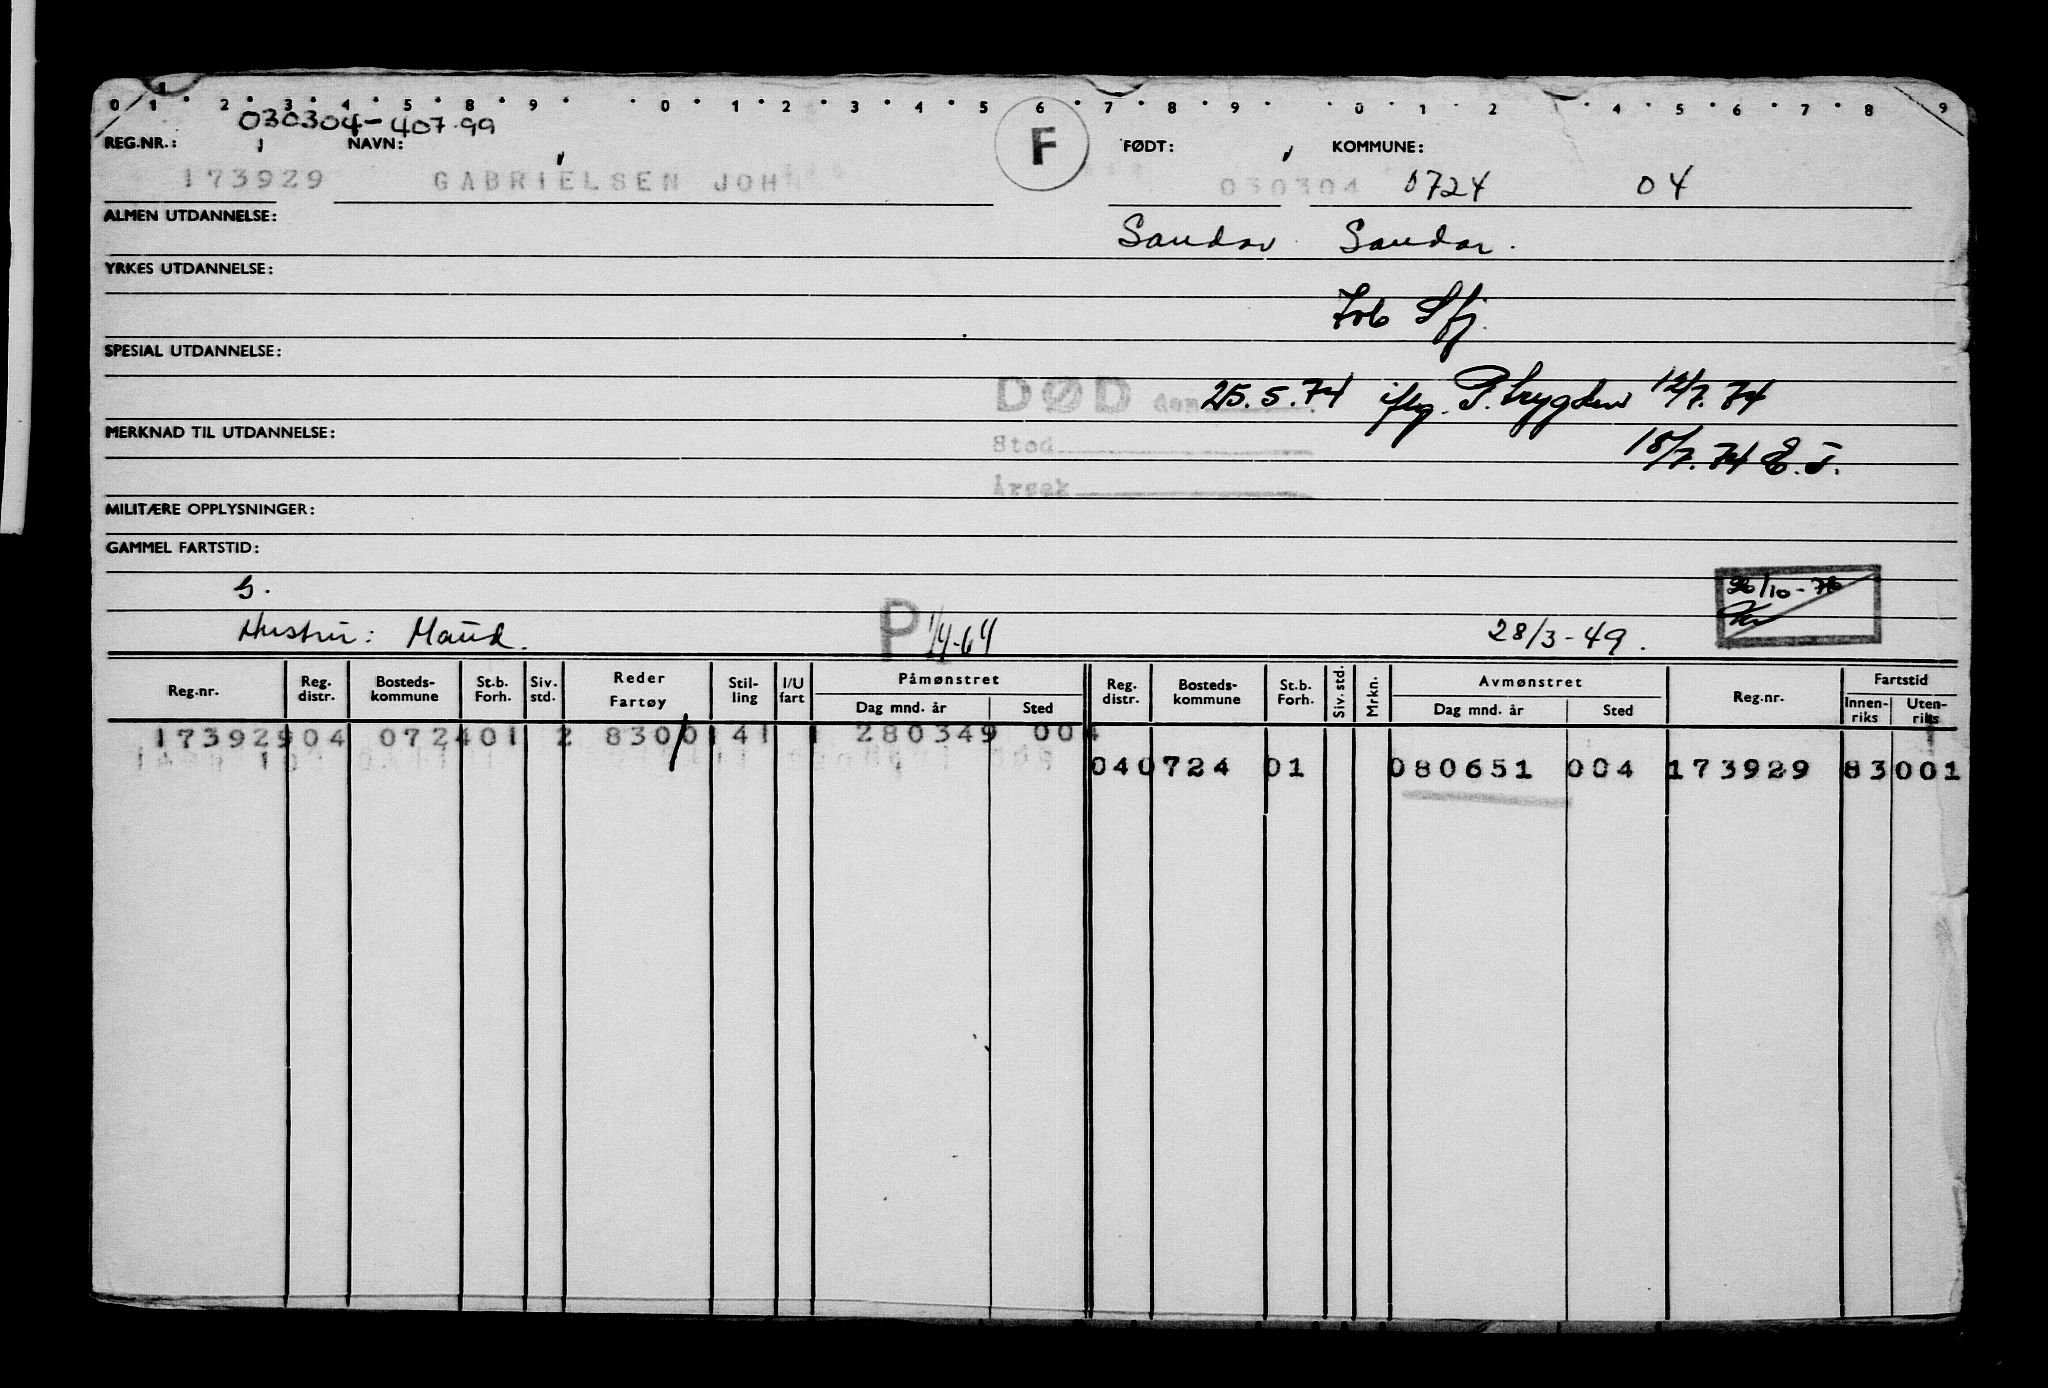 0 1 2 3 4 5 8 9 0 1 2 3 4 5 6 7 8 9 0 1 2 4 5 6 7 8 9
030304-407.99
REG.NR.: NAVN: F FØDT: KOMMUNE:
173929 GABRIELSEN JOH 030304 0724 04
ALMEN UTDANNELSE: Sandar Sandar.
YRKES UTDANNELSE:
Sfj.
SPESIAL UTDANNELSE:
DØD den 25.5.74 iflg. P.trygden 12/7.74
MERKNAD TIL UTDANNELSE:
Sted 18/7.74 E.T.
Årsak
MILITÆRE OPPLYSNINGER:
GAMMEL FARTSTID:
G. 26/10-76
Hustru: Maud. P 1/4-64 28/3-49.
Reg.nr. Reg. distr. Bosteds-kommune St.b. Forh. Siv. std. Reder Fartøy Stil-ling I/U fart Påmønstret Dag mnd. år Sted Reg. distr. Bosteds-kommune St.b. Forh. Siv. std. Mrkn. Avmønstret Dag mnd. år Sted Reg.nr. Fartstid Innen-riks Uten-riks
173929 04 0724 01 2 830 0 141 1 280349 004
04 0724 01 080651 004 173929 83001